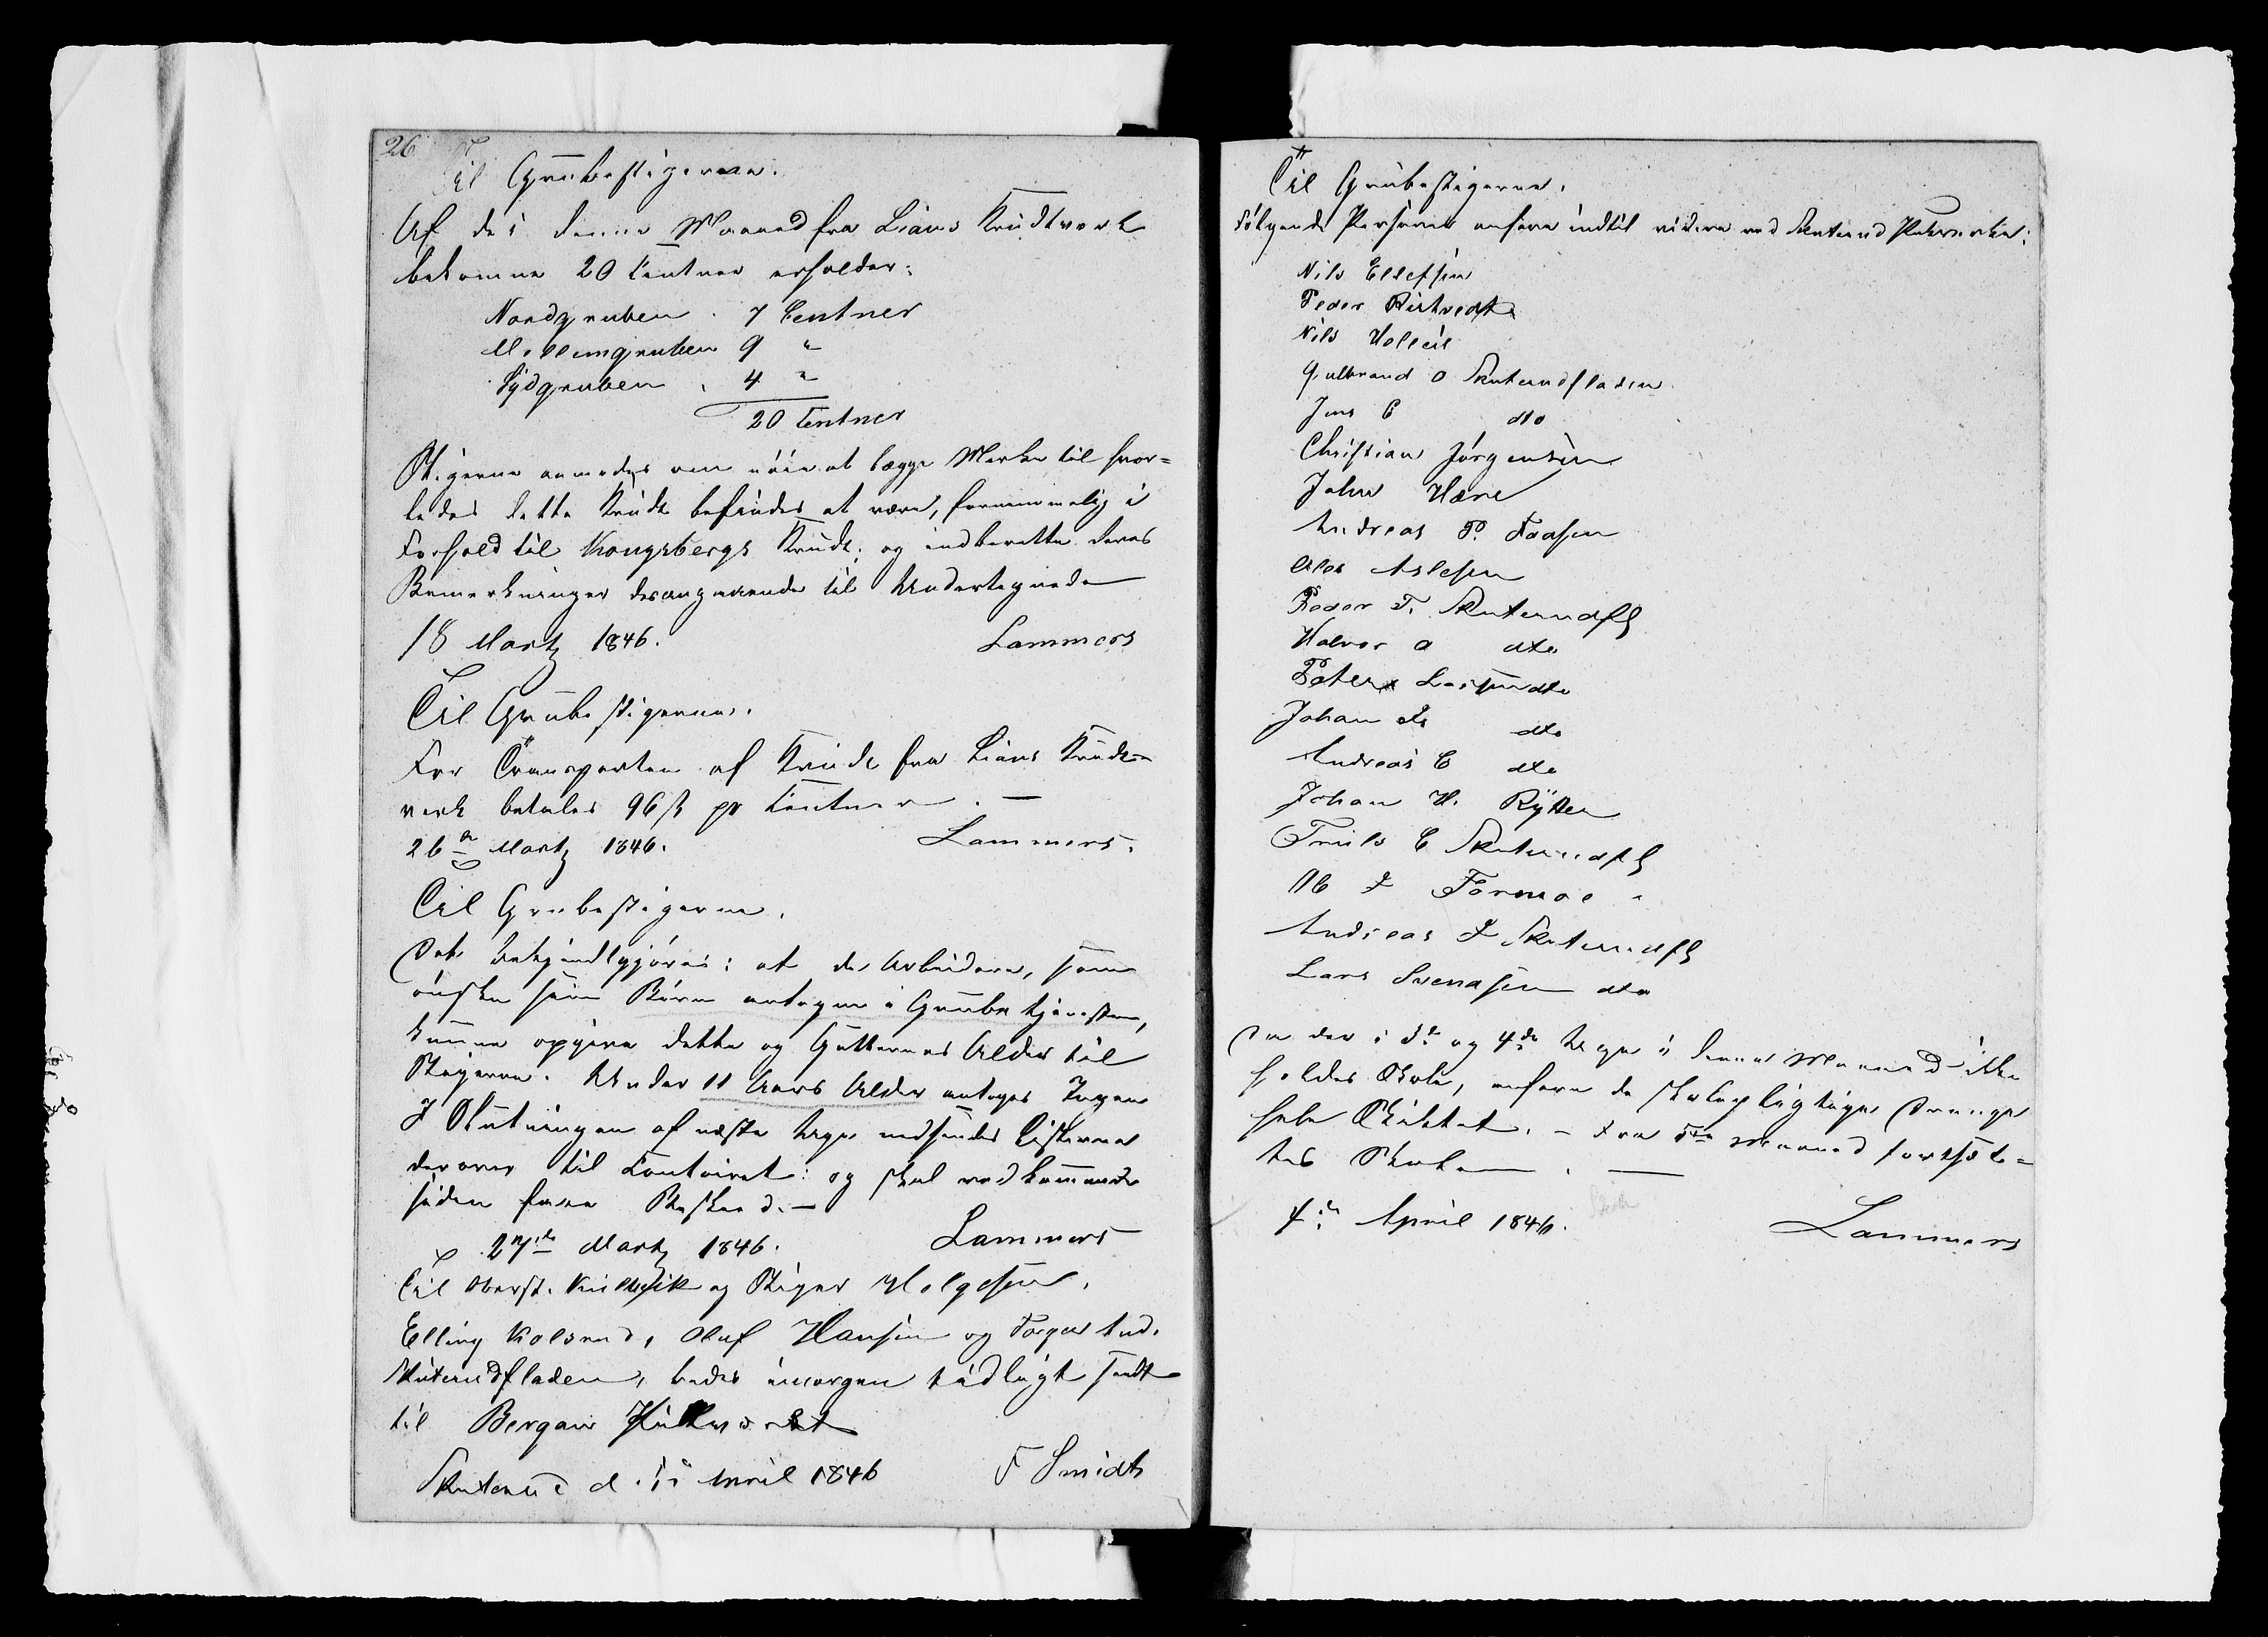 26
Til Grubestigerne.
Af de i denne Maaned fra Liers Krudtverk
bekomne 20 Centner erholder:
Nordgruben . 7 Centner
Mellemgruben 9 "
Sydgruben . 4 "
20 Centner
Stigerne anmodes om nöie at lægge Mærke til hvor=
ledes dette Krudt befindes at være, fornemmelig i
Forhold til Kongsbergs Krudt; og indberette deres
Bemærkninger desangaaende til Undertegnede
18 Martz 1846. Lammers
Til Grubestigerne.
For Transporten af Krudt fra Liers Krudt=
verk betales 96 ß pr Centner . —
26de Martz 1846. Lammers.
Til Grubestigerne.
Det bekjendtgjöres: at de Arbeidere, som
önske sine Börn antagne i Grubetjenesten,
kunne opgive dette og Gutternes Alder til
Stigerne. Under 11 Aars Alder antages Ingen
I Slutningen af næste Uge nedsendes Listerne
derover til Contoiret: og skal vedkommende
siden faae Besked. —
27de Martz 1846. Lammers
Til Oberst. og Stiger Helgesen.
Elling Kolsrud, Oluf Hansen og Torger And.
Skuterudfladen, bedes imorgen tidligt sendt
til Bergans
Skuterud d. April 1846 F Smidth
Til Grubestigerne.
Følgende Personer anfare indtil videre ved Skuterud Pukværker:
Nils Ellefsen
Peder
Nils
Gulbrand O Skuterudfladen
Jens E dto
Christian Jörgensen
John
Andreas P. Foosen
Asle Aslesen
Peder T. Skuterudfl
Halvor A dto
Peter Larsen dto
Johan dto
Andreas E dto
Johan H. Rytter
Truls E Skuterudfl
Ole J Formoe
Andreas J Skuterudfl
Lars Svendsen dto
Da der i 3de og 4de Uge i denne Maaned ikke
holdes Skole, anfare de skolepligtige Drenge
hele Skiktet. — Fra 5te Maaned fortsæt=
tes Skolen . —
4de April 1846. Lammers